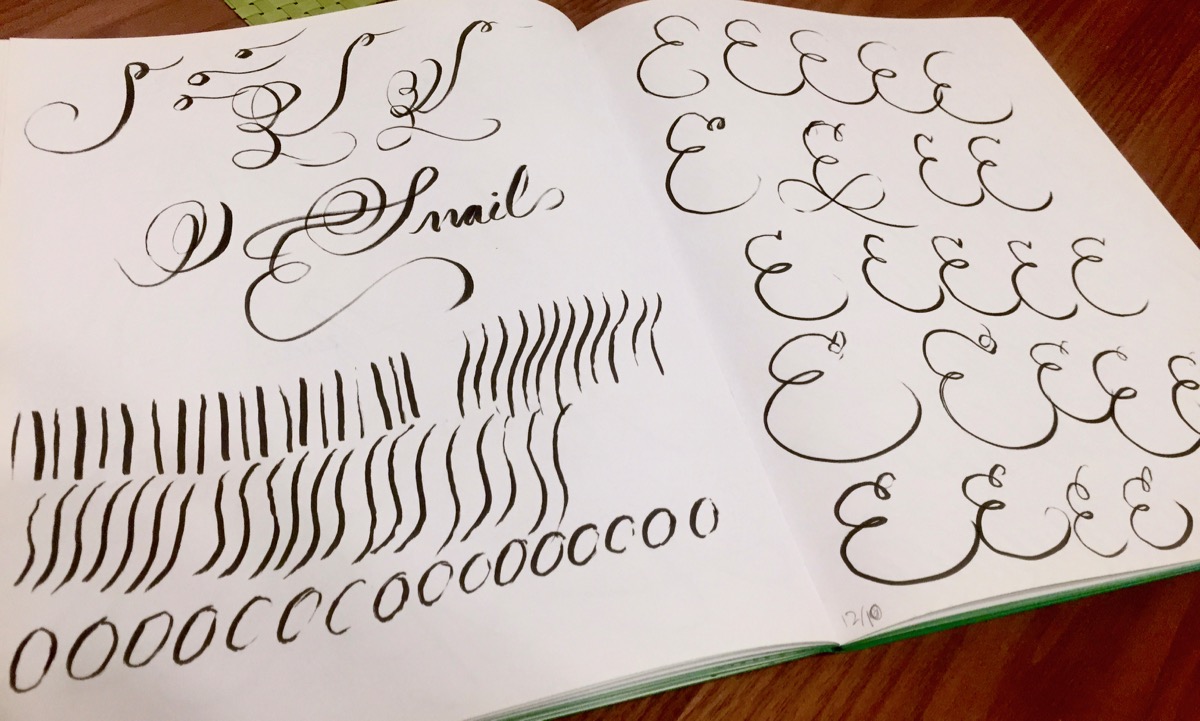 S S S
Snail
O O O O C C C O O O O O O C O O
E E E E E
E E E E
E E E E E
E E E E E
E E E E
12/10